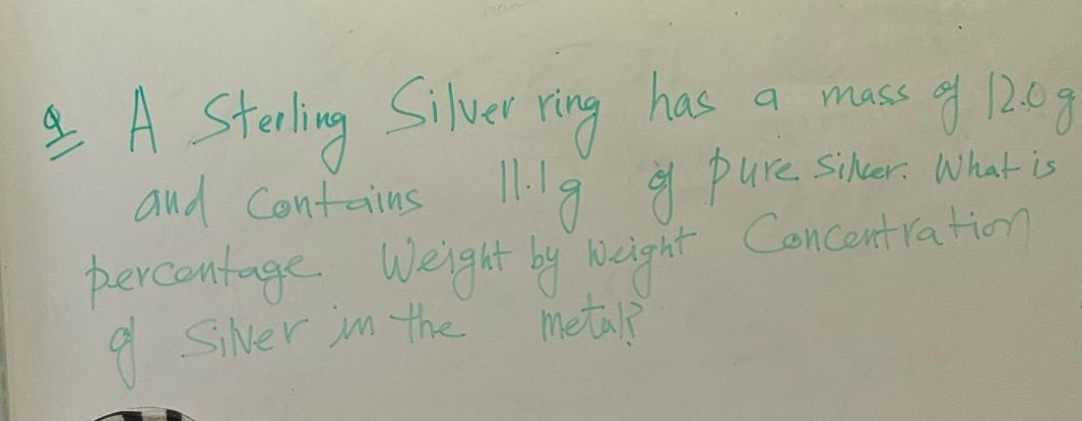 Q A Sterling Silver ring has a mass of 12.0g
and contains 11.1g of pure silver. What is
percentage Weight by Weight Concentration
of Silver in the metal?